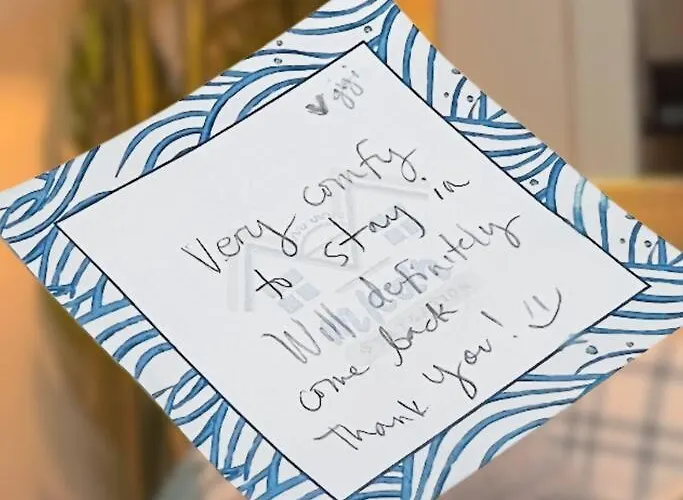 ♥ gigi
Very comfy
to stay in
Will definitely
come back
Thank you! :)